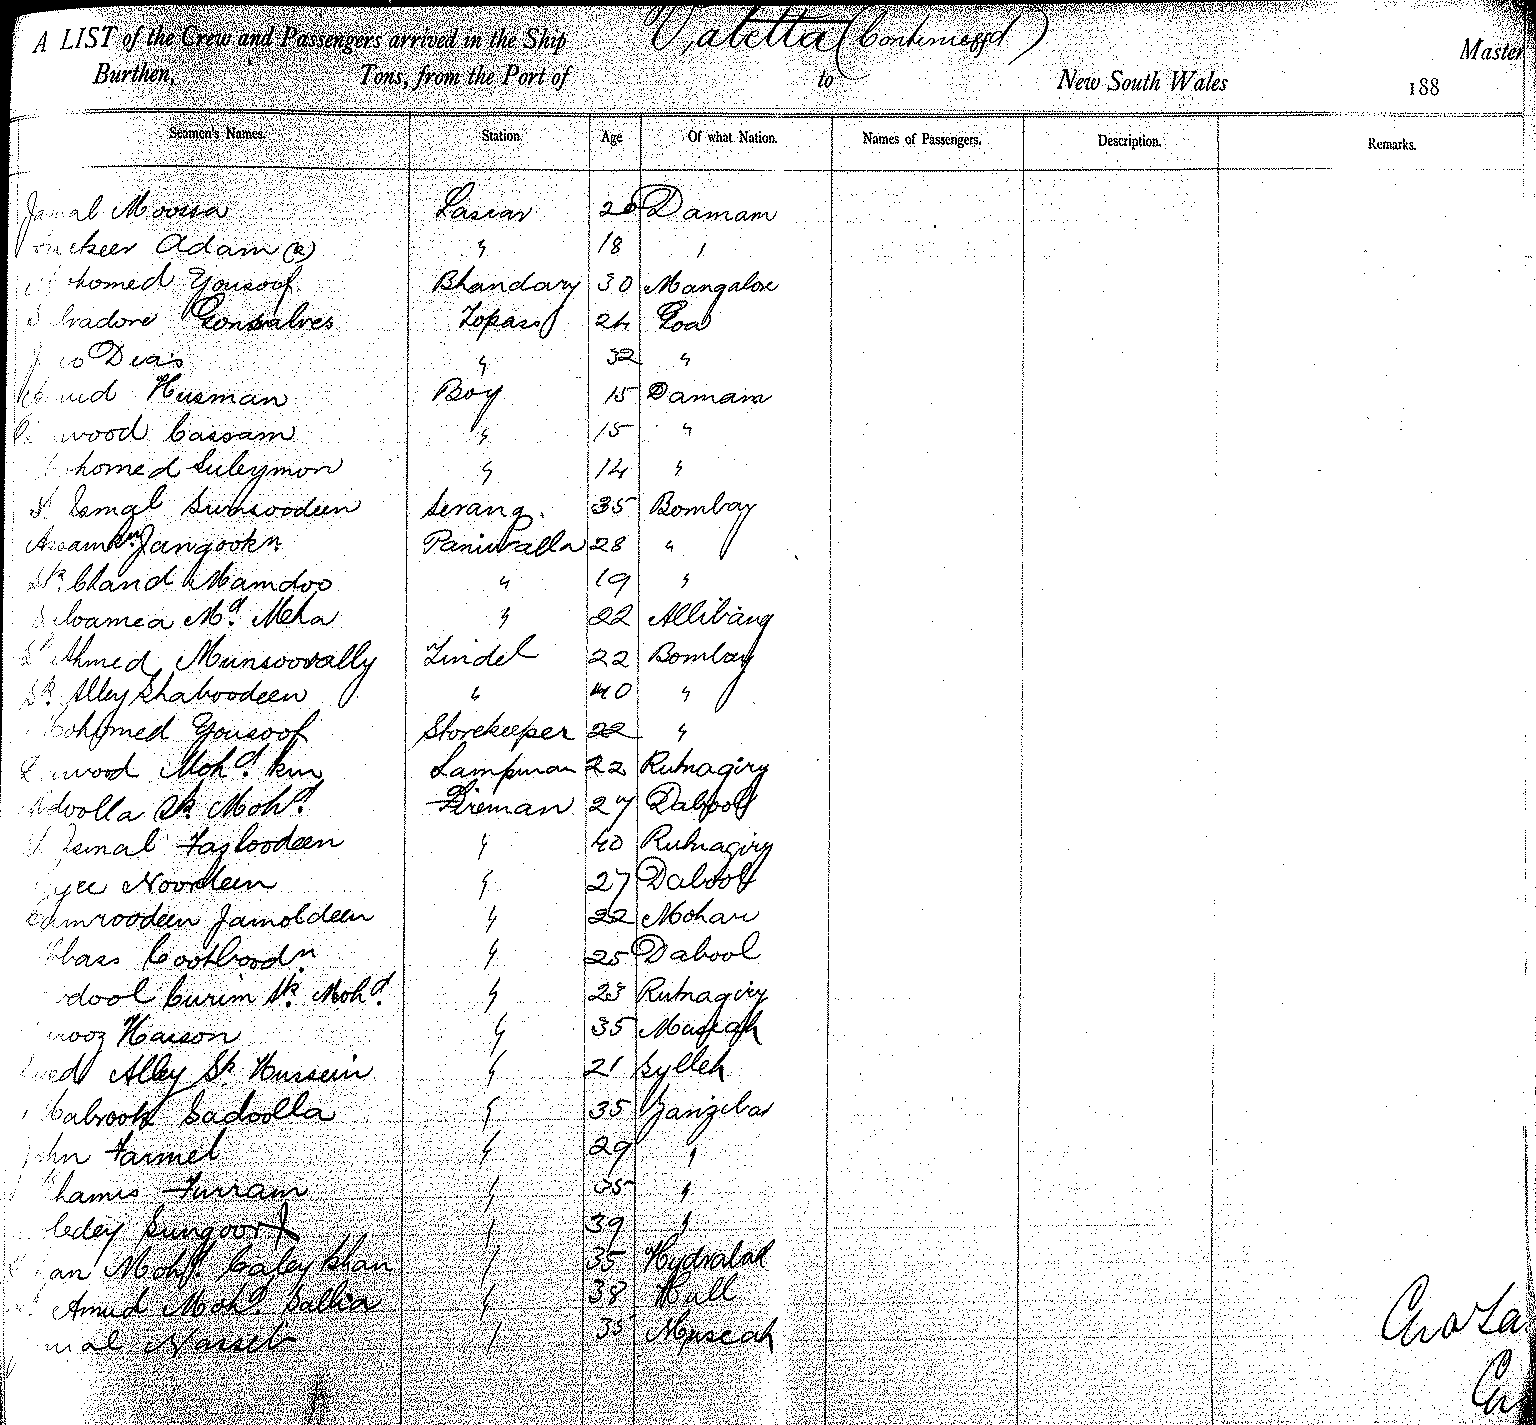 A LIST of the Crew and Passengers arrived in the Ship Valetta (Continued)
Master
Burthen, Tons, from the Port of to New South Wales 188
Seamen's Names. Station. Age Of what Nation. Names of Passengers. Description. Remarks.
Jamal Moossa Lascar 26 Damam
Adam (2) " 18 "
homed Yousoof Bhandary 30 Mangalore
lvadore Gonsalves Topass 24 Goa
Dias " 32 "
Husman Boy 15 Damam
wood Cassam " 15 "
homed Suleymon " 14 "
Esmal Sumsoodeen Serang. 35 Bombay
Jangookn Paniwalla 28 "
Sk. Chand Mamdoo " 19 "
Md. Meha " 22 Allibaug
Ahmed Munsoovally Tindel 22 Bombay
Sk. Alley Shaboodeen " 40 "
Mohomed Yousoof Storekeeper 22 "
wood Mohd. Lampman 22 Rutnagiry
doolla Sk. Mohd. Fireman 27 Dabool
Esmal Fasloodeen " 40 Rutnagiry
yee Noordeen " 27 Dabool
Camroodeen Jamoldeen " 22
bass Cootboodn " 25 Dabool
dool Curim Sk. Mohd. " 23 Rutnagiry
rooz Hasson " 35 Muscah
Alley Sk. Hussein " 21 Sylleh
Mabrook Sadoolla " 35 Zanzibar
Farmel " 29 "
hamis Furram " 35 "
Sungoor " 39 "
an Mohd. Caley Khan " 35
Amud Mohd. Sallia " 38 Hull
mal Nasseb " 35 Muscah